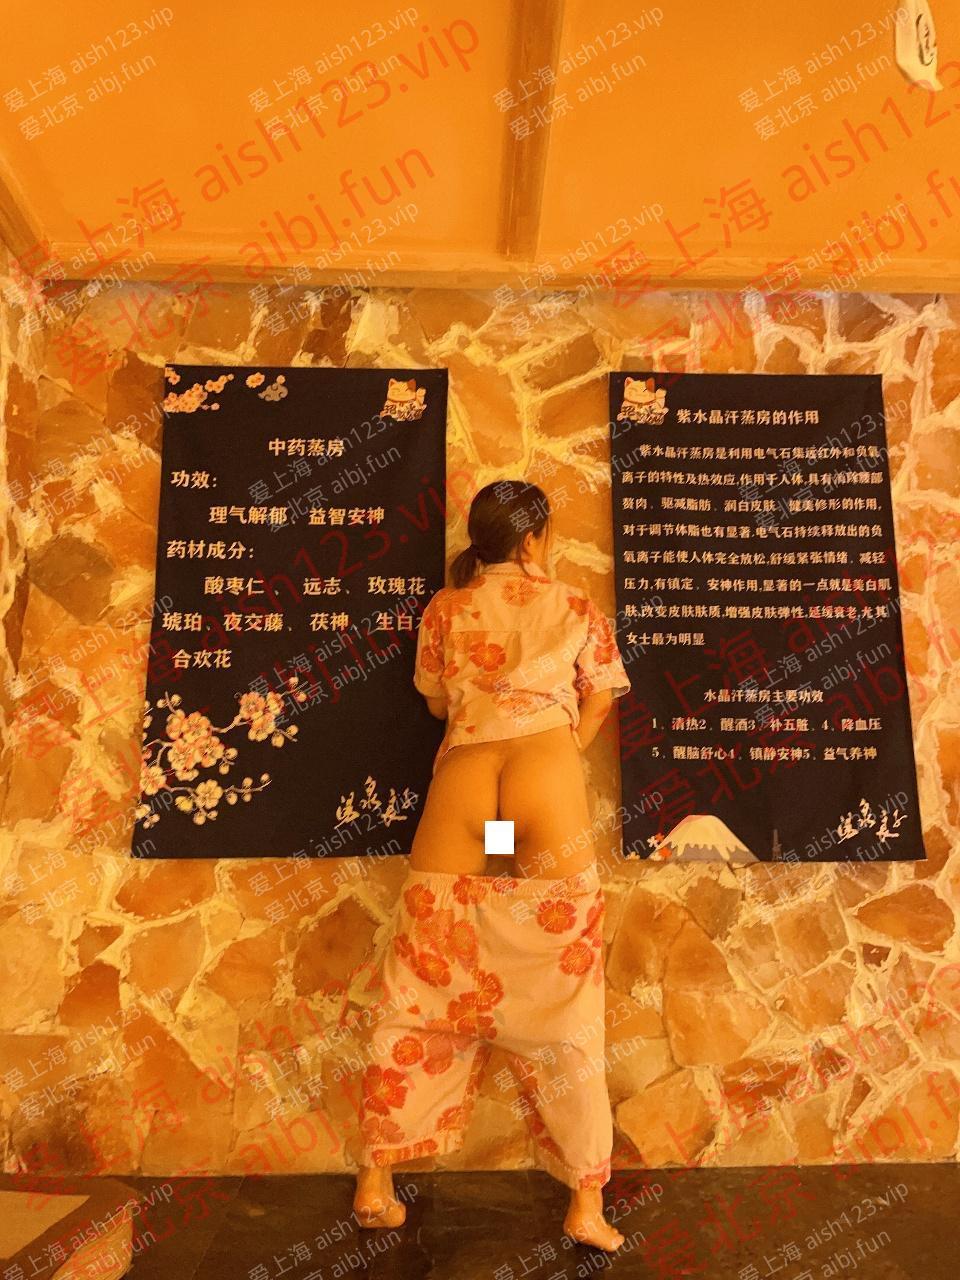 爱上海 aish123.vip
爱北京 aibj.fun
中药蒸房
功效：
理气解郁、益智安神
药材成分：
酸枣仁、远志、玫瑰花、
琥珀、夜交藤、茯神、生白
合欢花
紫水晶汗蒸房的作用
紫水晶汗蒸房是利用电气石集远红外和负氧
离子的特性及热效应,作用于人体,具有消除腰部
赘肉、驱减脂肪、润白皮肤、健美修形的作用,
对于调节体脂也有显著,电气石持续释放出的负
氧离子能使人体完全放松,舒缓紧张情绪、减轻
压力,有镇定、安神作用,显著的一点就是美白肌
肤,改变皮肤肤质,增强皮肤弹性,延缓衰老,尤其
女士最为明显
水晶汗蒸房主要功效
1、清热2、醒酒3、补五脏、4、降血压
5、醒脑舒心4、镇静安神5、益气养神